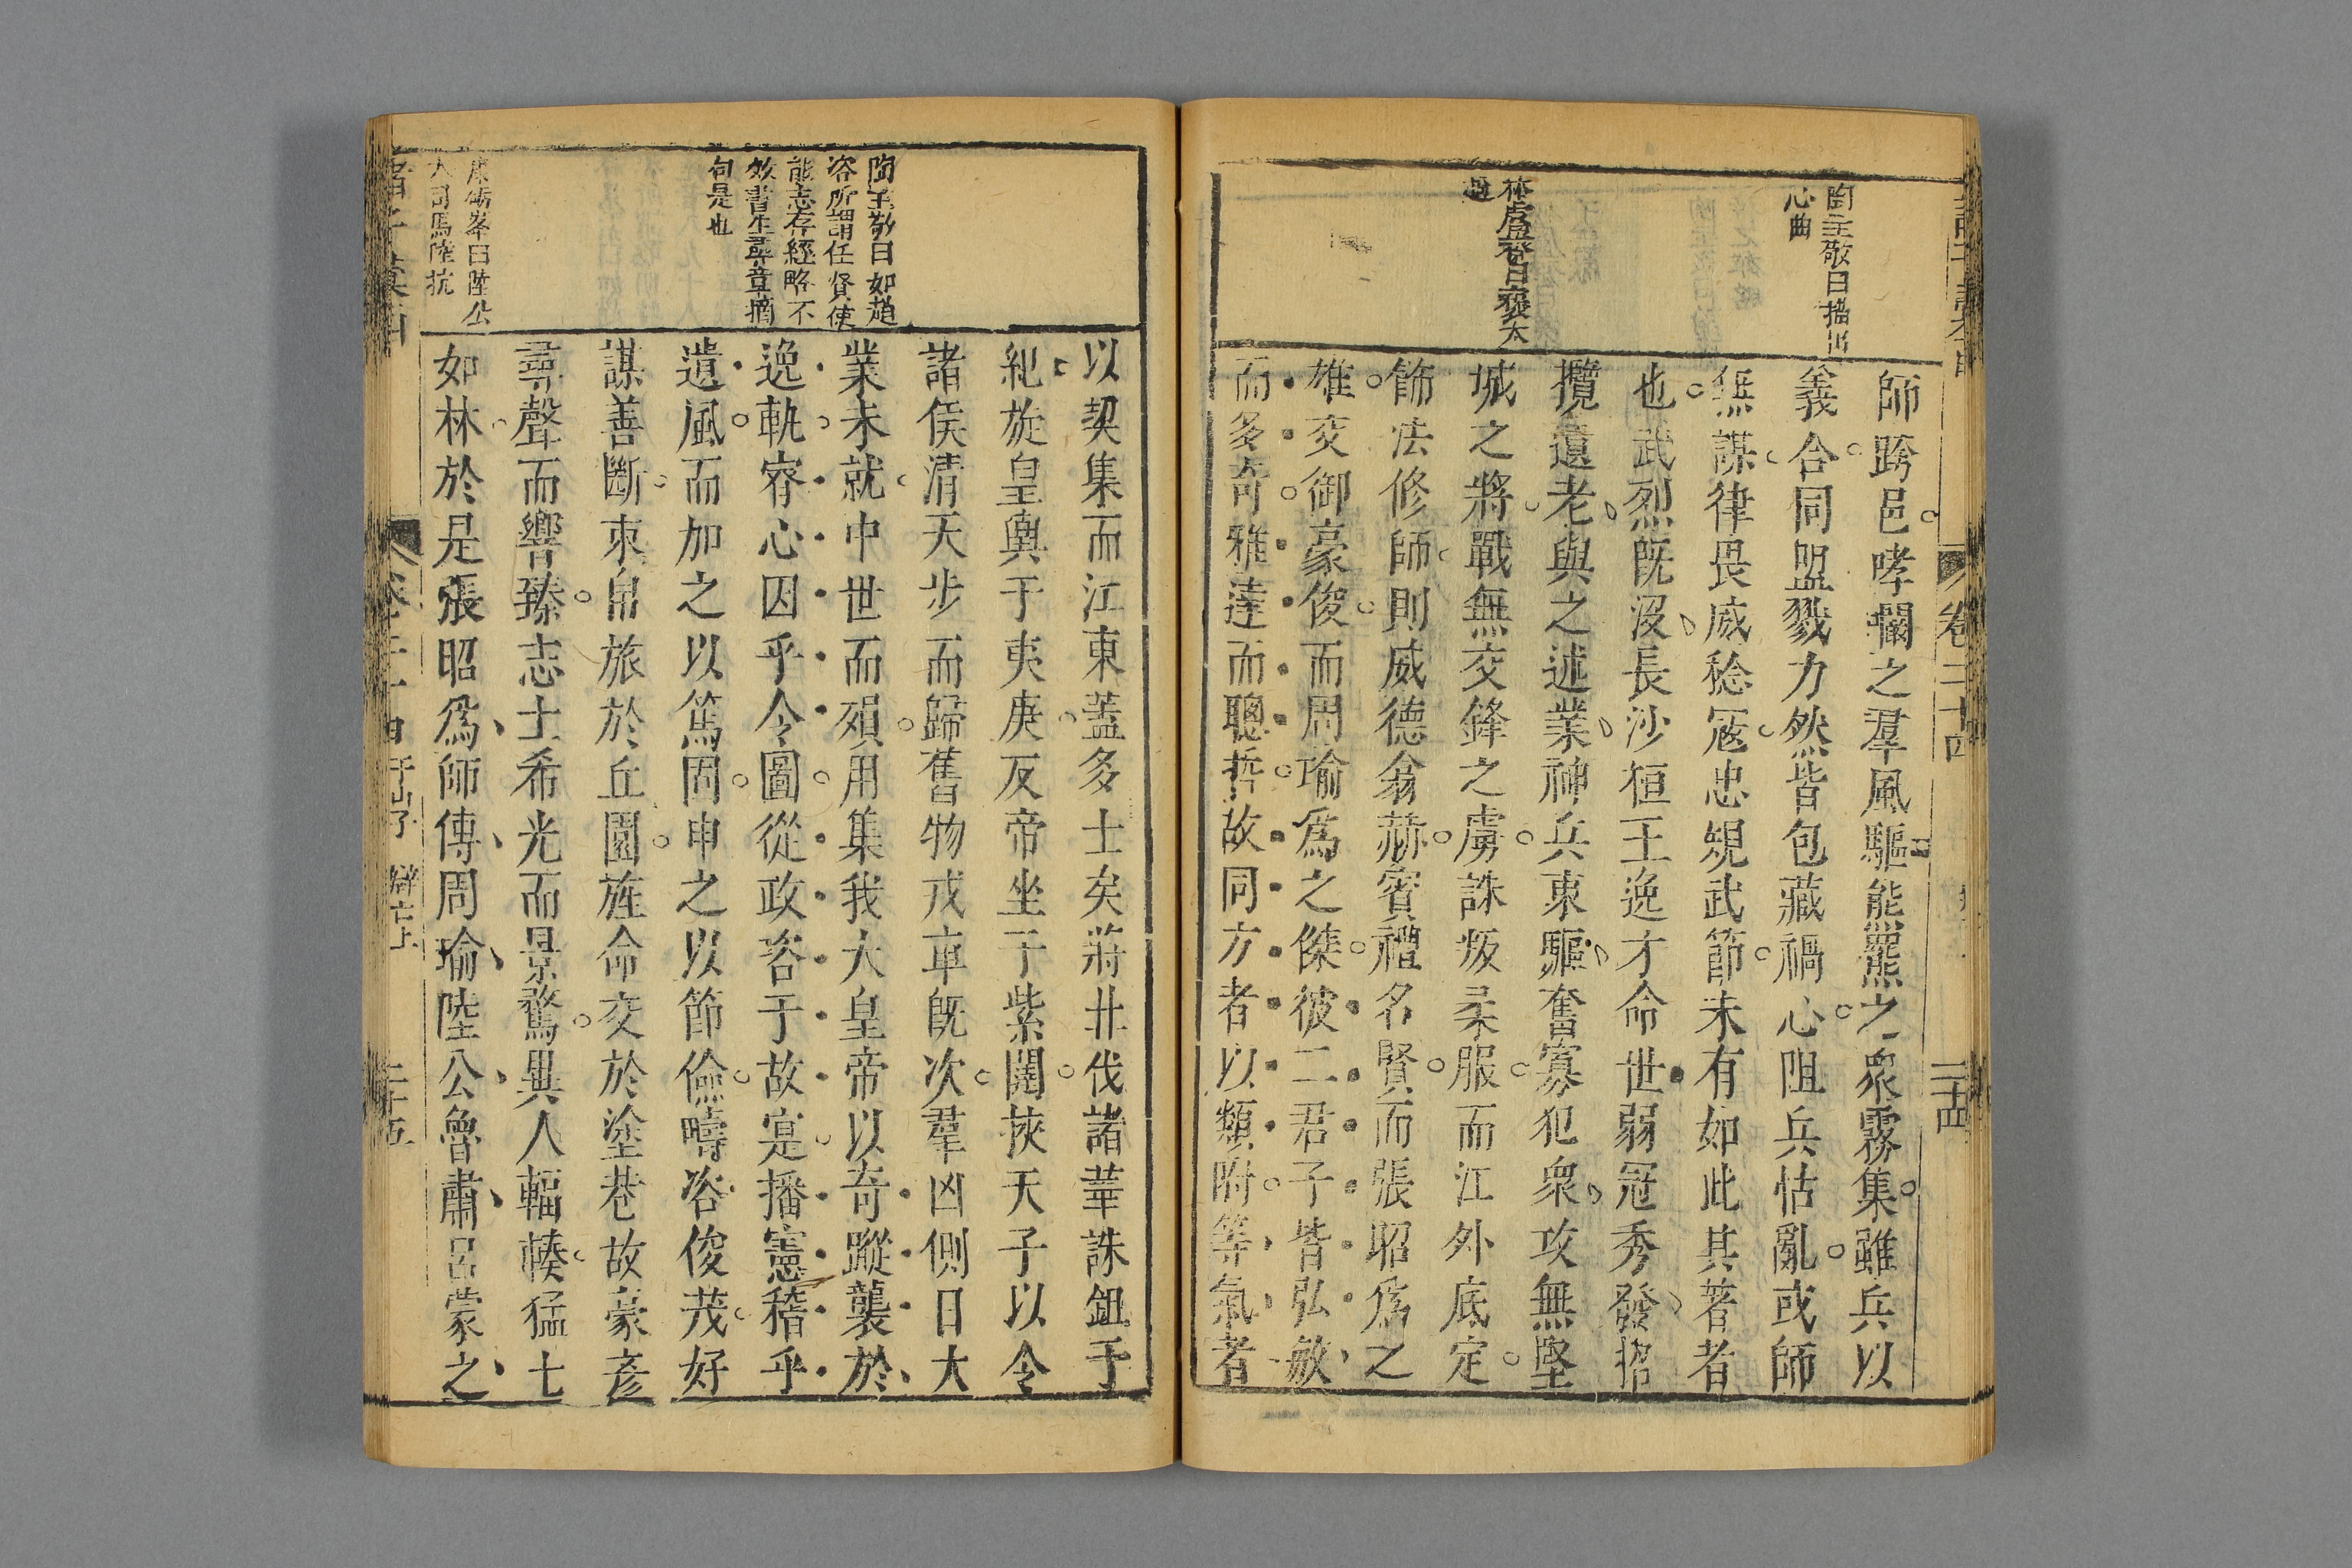 陶主敬曰搢川
心曲
林盧登曰褒太
過
師跨邑哮闞之羣風驅熊羆之衆霧集雖兵以
義合同盟戮力然皆包藏禍心阻兵怙亂或師
無謀律畏威稔寇忠規武節未有如此其著者
也武烈既沒長沙桓王逸才命世弱冠秀發招
攬遺老與之述業神兵東驅奮寡犯衆攻無堅
城之將戰無交鋒之虜誅叛柔服而江外底定
飾法修師則威德翕赫賓禮名賢而張昭爲之
雄交御豪俊而周瑜爲之傑彼二君子皆弘敏
而多奇雅達而聰哲故同方者以類附等氣者
卷二十四
二十四
陶主敬曰如趙
咨所謂任賢使
能志存經略不
效書生尋章摘
句是也
康礪峯曰陸公
大司馬陸抗
以契集而江東蓋多士矣將北伐諸華誅鉏于
紀旋皇輿于夷庚反帝坐于紫闥挾天子以令
諸侯清天步而歸舊物戎車既次羣凶側目大
業未就中世而殞用集我大皇帝以奇蹤襲於
逸軌睿心因乎令圖從政咨于故寔播憲稽乎
遺風而加之以篤固申之以節儉疇咨俊茂好
謀善斷束帛旅於丘園旌命交於塗巷故豪彥
尋聲而響臻志士希光而景騖異人輻輳猛士
如林於是張昭爲師傅周瑜陸公魯肅呂蒙之
于子 辯亡上
二十五